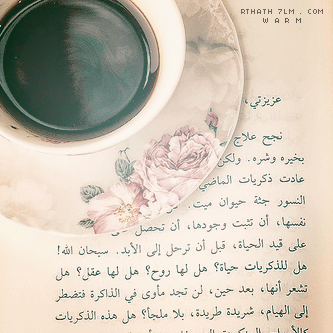 RTHATH 7LM . COM
W A R M
عزيزتي،
نجح علاج
بخيره وشره. ولكن
عادت ذكريات الماضي
النسور جثة حيوان ميت.
نفسها، أن تثبت وجودها، أن تحصل
على قيد الحياة، قبل أن ترحل إلى الأبد. سبحان الله!
هل للذكريات حياة؟ هل لها روح؟ هل لها عقل؟ هل
تشعر أنها، بعد حين، لن تجد مأوى في الذاكرة فتضطر
إلى الهيام، شريدة طريدة، بلا ملجأ؟ هل هذه الذكريات